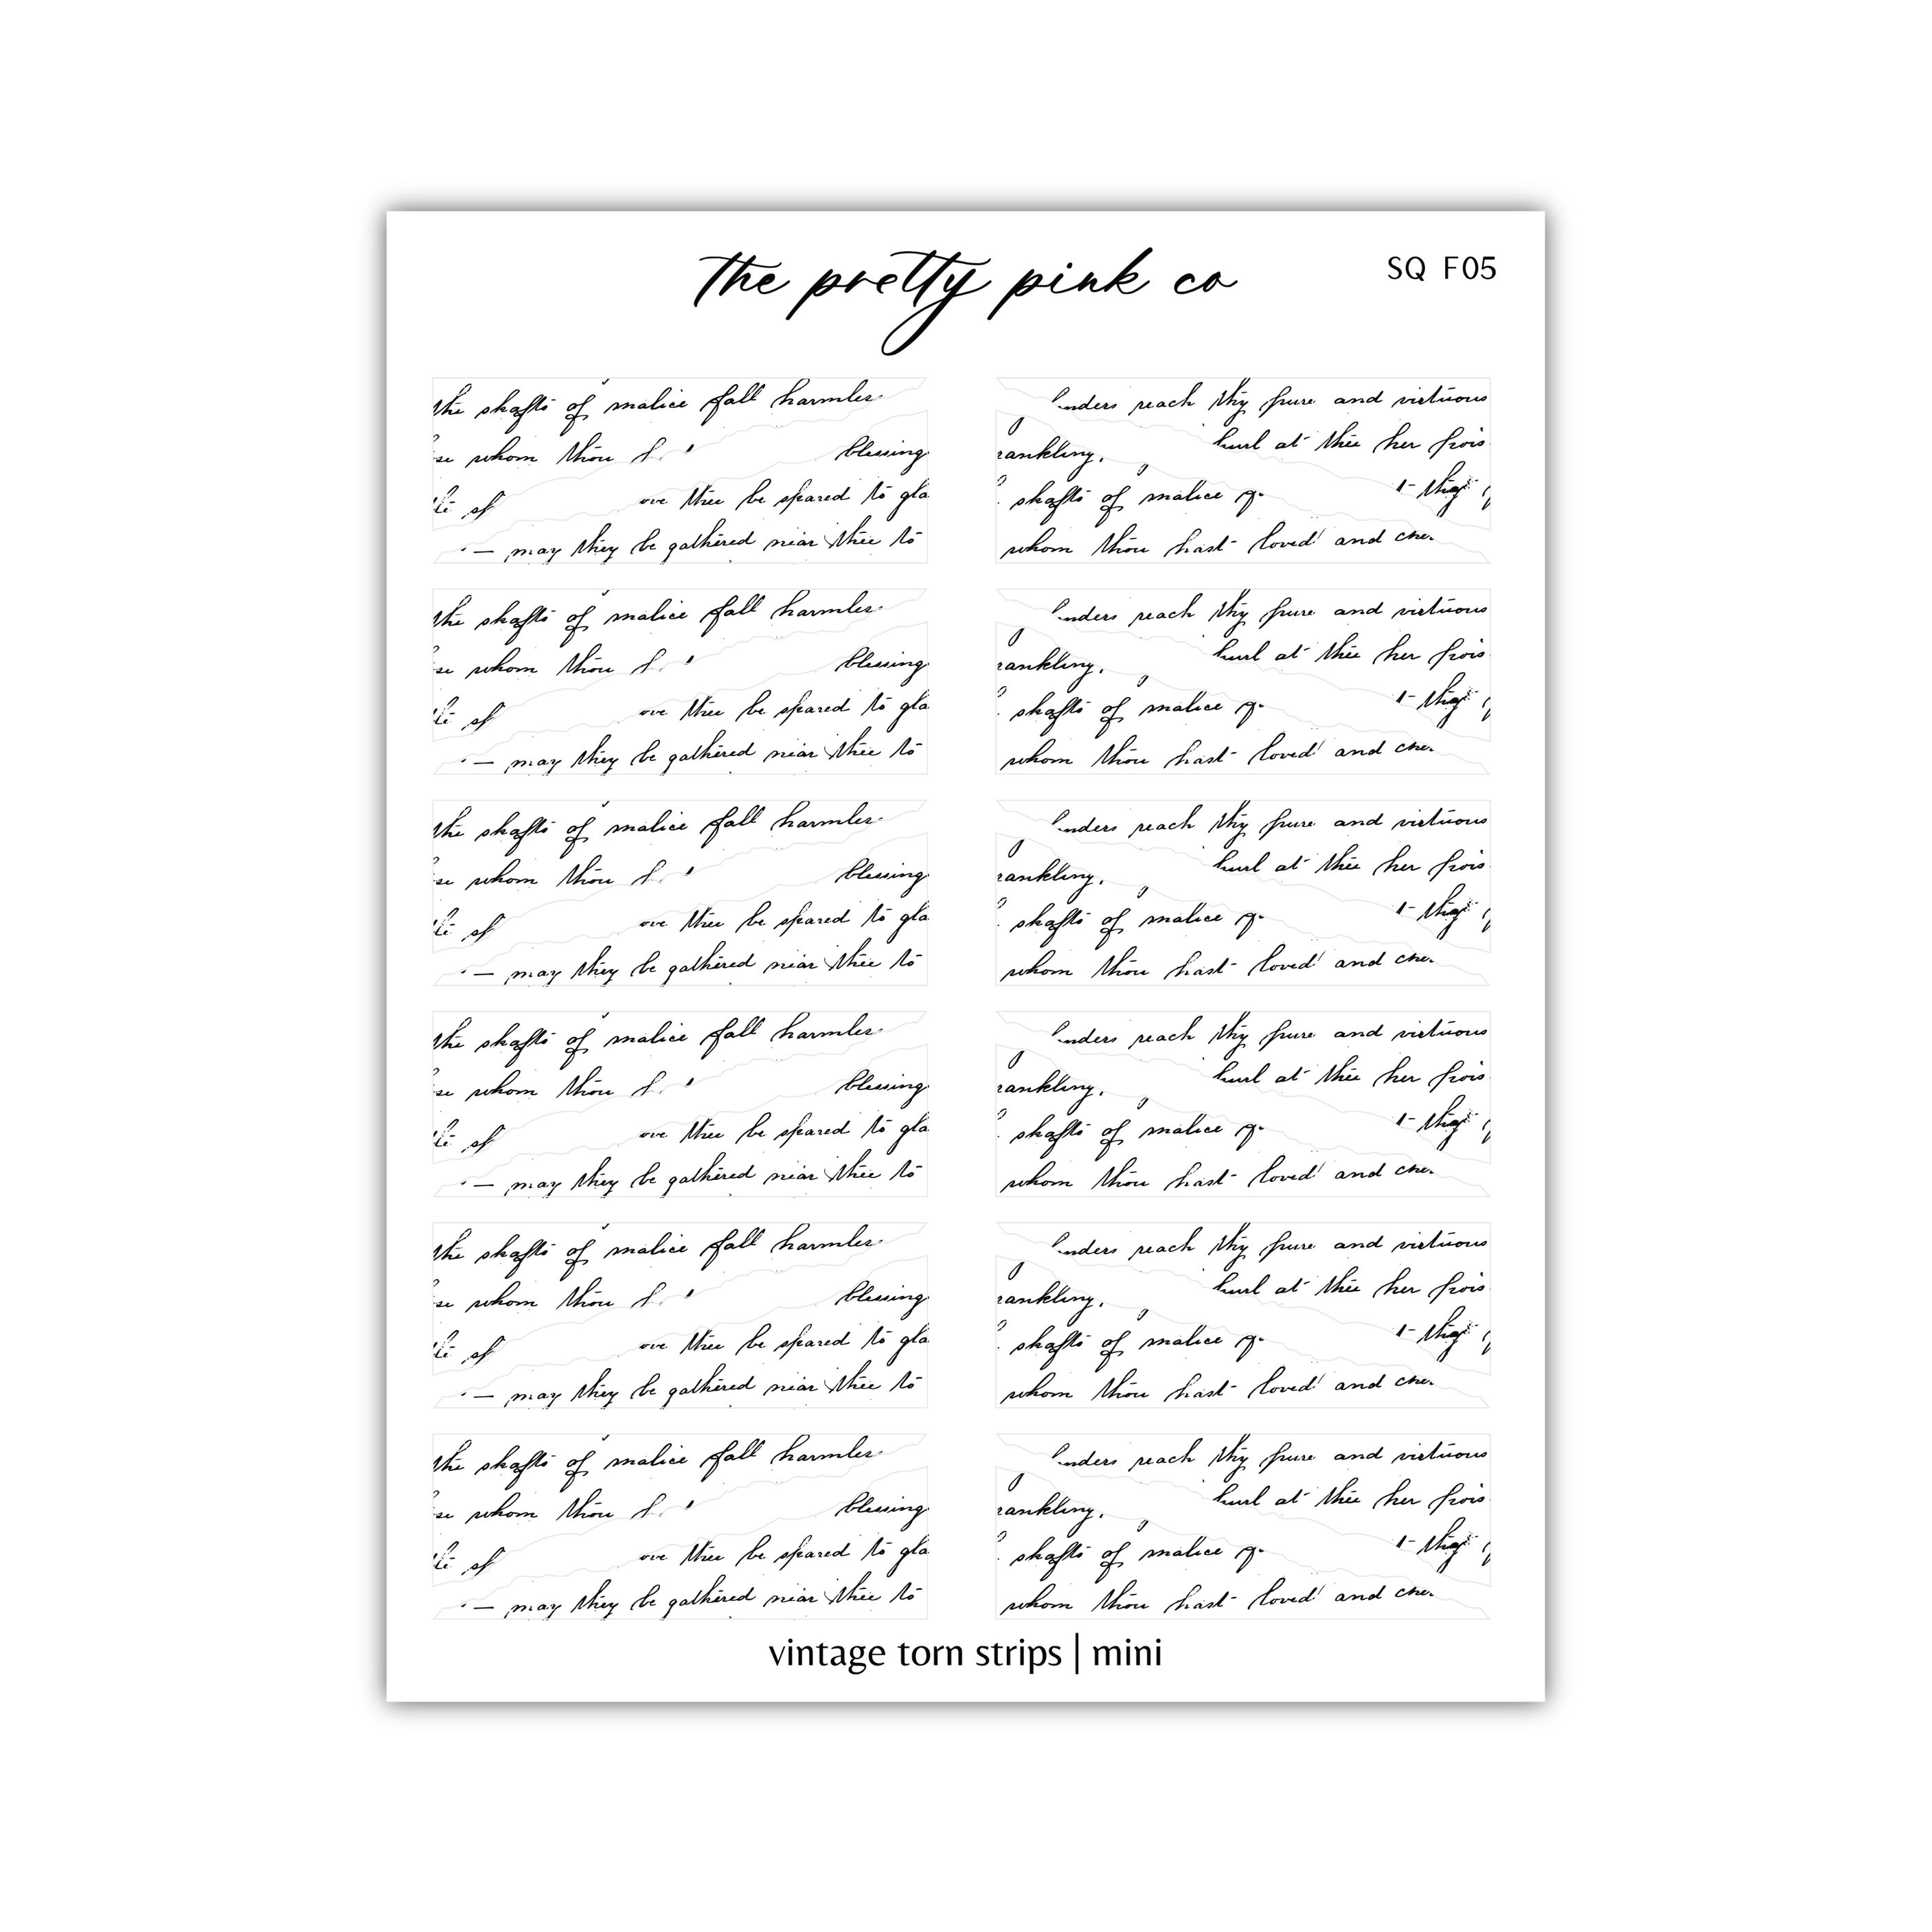 the pretty pink co
SQ F05
the shafts of malice fall harmles
whom thou blessing
of thee be speared to gla
— may they be gathered near thee to
nders reach thy pure and virtuous
rankling, hurl at thee her pois
shafts of malice thy
whom thou hast loved and che
the shafts of malice fall harmles
whom thou blessing
of thee be speared to gla
— may they be gathered near thee to
nders reach thy pure and virtuous
rankling, hurl at thee her pois
shafts of malice thy
whom thou hast loved and che
the shafts of malice fall harmles
whom thou blessing
of thee be speared to gla
— may they be gathered near thee to
nders reach thy pure and virtuous
rankling, hurl at thee her pois
shafts of malice thy
whom thou hast loved and che
the shafts of malice fall harmles
whom thou blessing
of thee be speared to gla
— may they be gathered near thee to
nders reach thy pure and virtuous
rankling, hurl at thee her pois
shafts of malice thy
whom thou hast loved and che
the shafts of malice fall harmles
whom thou blessing
of thee be speared to gla
— may they be gathered near thee to
nders reach thy pure and virtuous
rankling, hurl at thee her pois
shafts of malice thy
whom thou hast loved and che
the shafts of malice fall harmles
whom thou blessing
of thee be speared to gla
— may they be gathered near thee to
nders reach thy pure and virtuous
rankling, hurl at thee her pois
shafts of malice thy
whom thou hast loved and che
vintage torn strips | mini